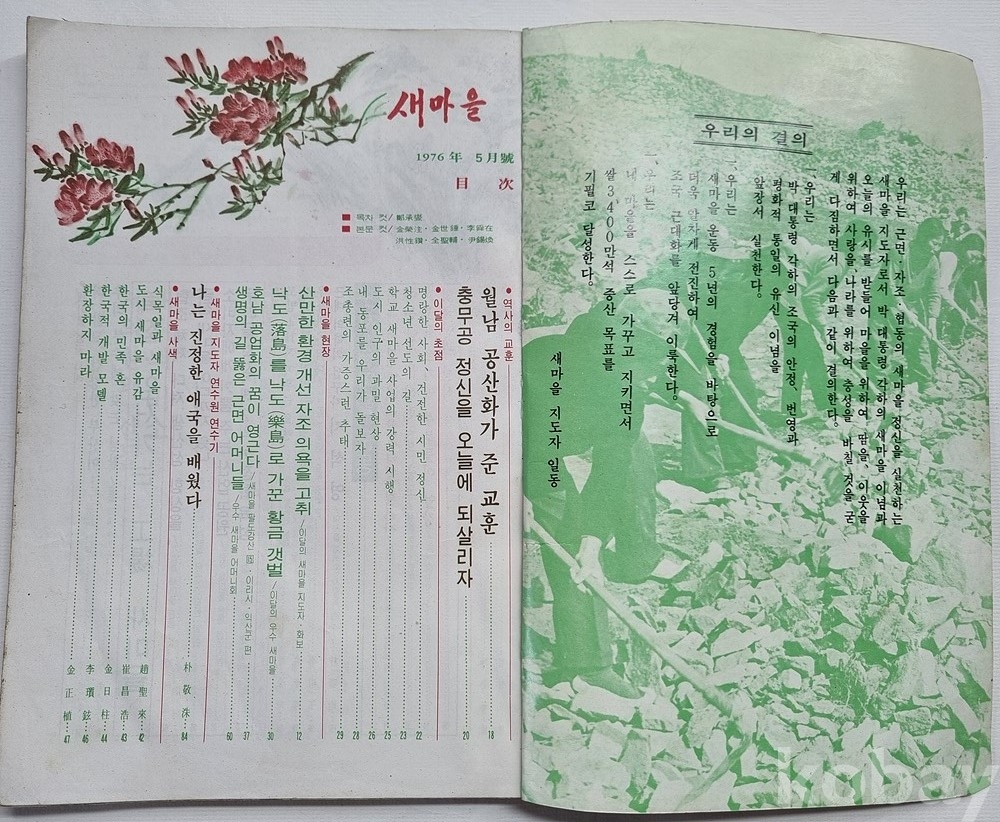 우리의 결의
우리는 근면·자조·협동의 새마을 정신을 실천하는
새마을 지도자로서 박 대통령 각하의 새마을 이념과
오늘의 유시를 받들어 마을을 위하여, 땀을, 이웃을
위하여 사랑을, 나라를 위하여 충성을 바칠 것을 굳
게 다짐하면서 다음과 같이 결의한다.
一、우리는
박 대통령 각하의 조국의 안정、번영과
평화적 통일의 유신 이념을
앞장서 실천한다.
一、우리는
새마을 운동 5년의 경험을 바탕으로
더욱 알차게 전진하여
조국 근대화를 앞당겨 이룩한다.
一、우리는
내 마을을 스스로 가꾸고 지키면서
쌀 3,400만석 증산 목표를
기필코 달성한다.
새마을 지도자 일동
새마을
1976年 5月號
目次
■ 목차 컷/鄭承燮
■ 본문 컷/金榮注·金世鍾·李舜在
洪性鑽·全聖輔·尹錫煥
● 역사의 교훈
월남 공산화가 준 교훈 18
충무공 정신을 오늘에 되살리자 20
● 이달의 초점
명랑한 사회、건전한 시민 정신 22
청소년 선도의 길 23
학교 새마을 사업의 강력 시행 25
도시 인구의 과밀 현상 26
내 동포를 우리가 돌보자 28
조총련의 가증스런 추태 29
● 새마을 현장
산만한 환경 개선 자조 의욕을 고취/이달의 새마을 지도자·화보 12
낙도(落島)를 낙도(樂島)로 가꾼 황금 갯벌/이달의 우수 새마을 30
호남 공업화의 꿈이 영근다/새마을 팔도강산 ·이리시·익산군 편 37
생명의 길 뚫은 근면 어머니들/우수 새마을 어머니회 60
● 새마을 지도자 연수원 연수기
나는 진정한 애국을 배웠다 朴敬洙 84
● 새마을 사색
식목일과 새마을 趙聖來 42
도시 새마을 유감 崔昌浩 43
한국의 민족 혼 金日柱 44
한국적 개발 모델 李瓚鉉 46
환장하지 마라 金正植 47
kobay